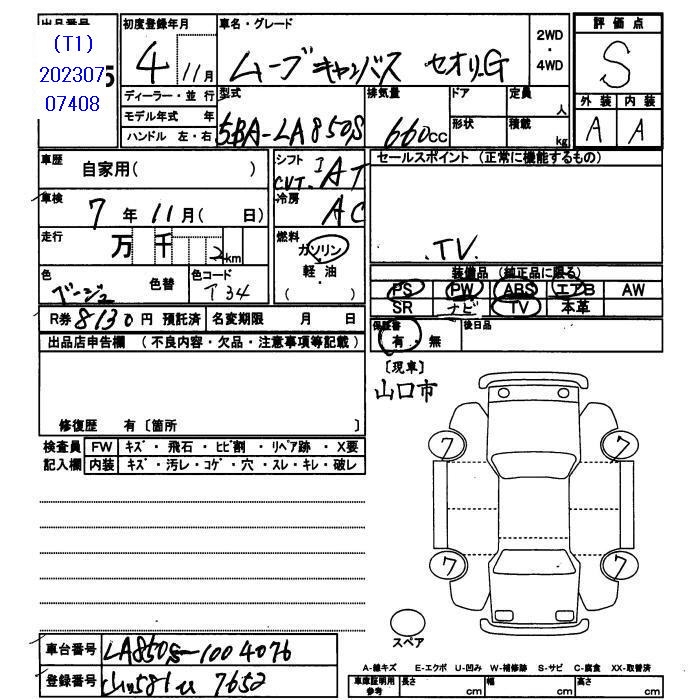 出品番号
(T1)
202307
07408
5
初度登録年月
4 11月
車名・グレード
ムーブキャンバス セオリーG
2WD
・
4WD
評価点
S
外装 内装
A A
ディーラー・並行
モデル年式 年
ハンドル 左・右
型式
5BA-LA850S
排気量
660cc
ドア
形状
定員
人
積載
kg
車歴
自家用( )
車検
7 年 11 月( 日)
走行
万 千 2 km
色
ベージュ
色替
色コード
T34
シフト
CVT. I AT
冷房
AC
燃料
ガソリン
・
軽・油
( )
セールスポイント (正常に機能するもの)
.TV.
装備品 (純正品に限る)
PS PW ABS エアB AW
SR ナビ TV 本革
R券 8130 円 預託済
名変期限 月 日
保証書
有・無
後日品
出品店申告欄 (不良内容・欠品・注意事項等記載)
修復歴 有〔箇所 〕
〔現車〕
山口市
検査員
記入欄
FW キズ・飛石・ヒビ割・リペア跡・X要
内装 キズ・汚レ・コゲ・穴・スレ・キレ・破レ
7 7
7 7
スペア
車台番号 LA850S-1004076
登録番号 581 7652
A-線キズ E-エクボ U-凹み W-補修跡 S-サビ C-腐食 XX-取替済
車庫証明用
参考
長さ cm 幅 cm 高さ cm